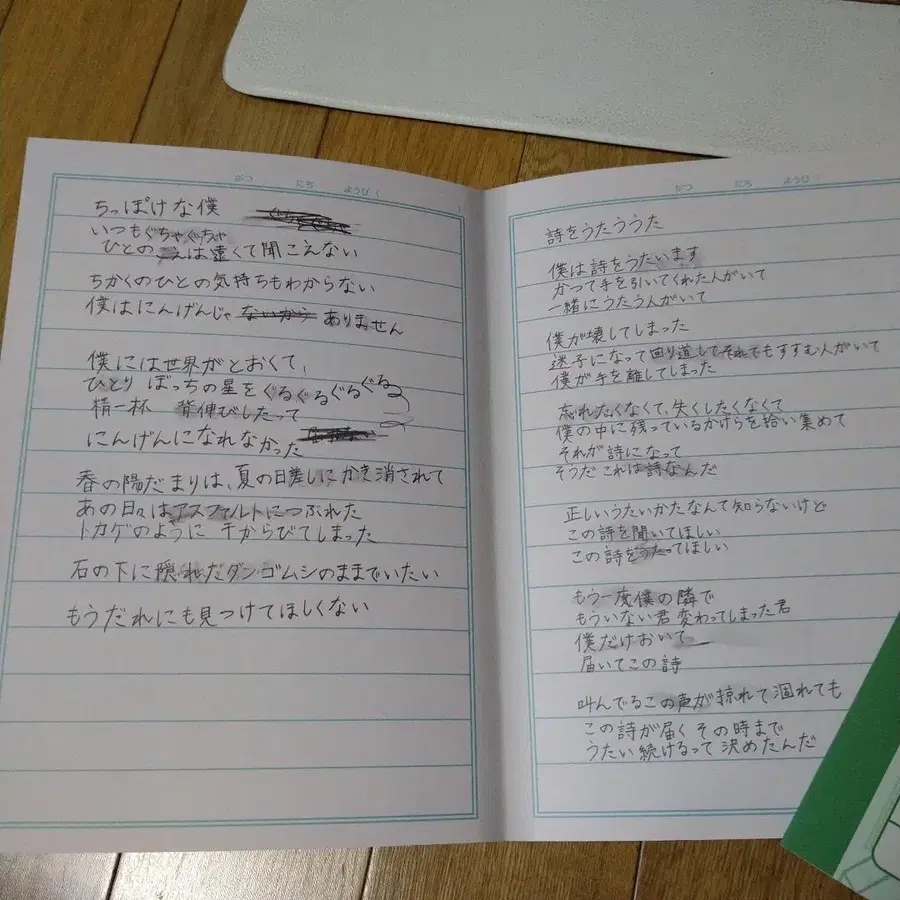 がつ にち ようび
ちっぽけな僕
いつもぐちゃぐちゃ
ひとのこえは遠くて聞こえない
ちかくのひとの気持ちもわからない
僕はにんげんじゃ ないから ありません
僕には世界がとおくて、
ひとりぼっちの星をぐるぐるぐるぐる
精一杯 背伸びしたって
にんげんになれなかった
春の陽だまりは、夏の日差しにかき消されて
あの日々はアスファルトにつぶれた
トカゲのように 干からびてしまった
石の下に隠れたダンゴムシのままでいたい
もうだれにも見つけてほしくない
がつ にち ようび
詩をうたううた
僕は詩をうたいます
かつて手を引いてくれた人がいて
一緒にうたう人がいて
僕が壊してしまった
迷子になって回り道してそれでもすすむ人がいて
僕が手を離してしまった
忘れたくなくて、失くしたくなくて
僕の中に残っているかけらを拾い集めて
それが詩になって
そうだ これは詩なんだ
正しいうたいかたなんて知らないけど
この詩を聞いてほしい
この詩をうたってほしい
もう一度僕の隣で
もういない君 変わってしまった君
僕だけおいて
届いてこの詩
叫んでるこの声が掠れて涸れても
この詩が届く その時まで
うたい続けるって 決めたんだ